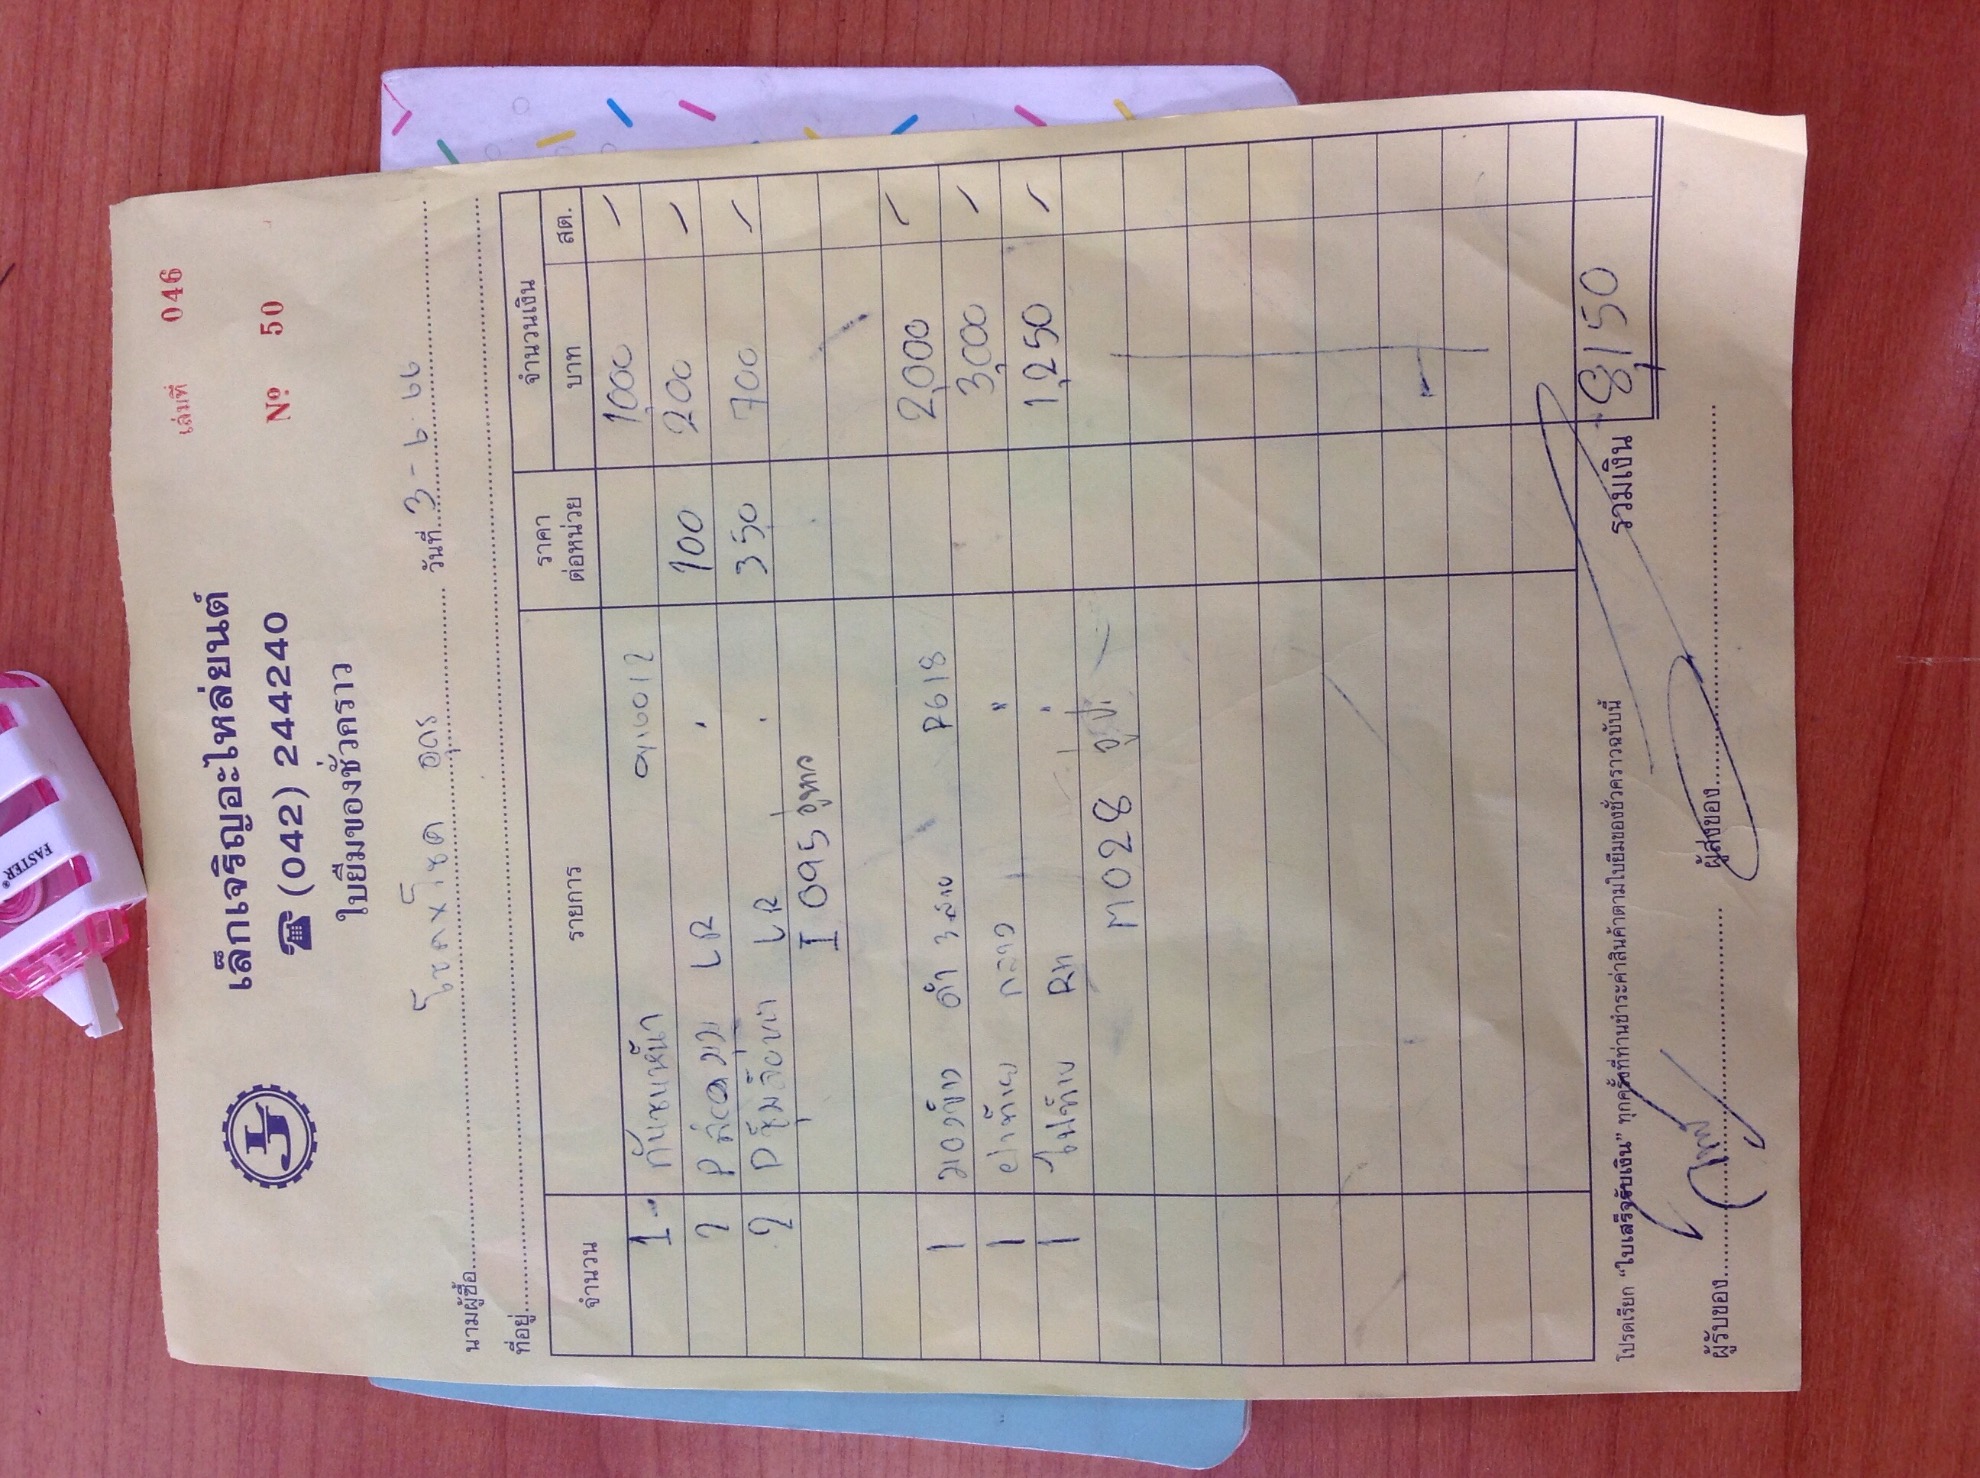 เล่มที่ 046
เล็กเจริญอะไหล่ยนต์
☎ (042) 244240
Nº 50
ใบยืมของชั่วคราว
นามผู้ซื้อ โชคxโชค อุดร วันที่ 3-6.66
ที่อยู่
จำนวน รายการ ราคาต่อหน่วย จำนวนเงิน
บาท สต.
1 กันชนหน้า 1,000 -
2 LR 100 200 -
2 LR 350 700 -
I 095
1 ดำ P618 2,000 -
1 " 3,000 -
1 ไฟท้าย RH " 1,250 -
M028
รวมเงิน 8,150
โปรดเรียก "ใบเสร็จรับเงิน" ทุกครั้งที่ท่านชำระค่าสินค้าตามใบยืมของชั่วคราวฉบับนี้
ผู้รับของ ผู้ส่งของ
FASTER